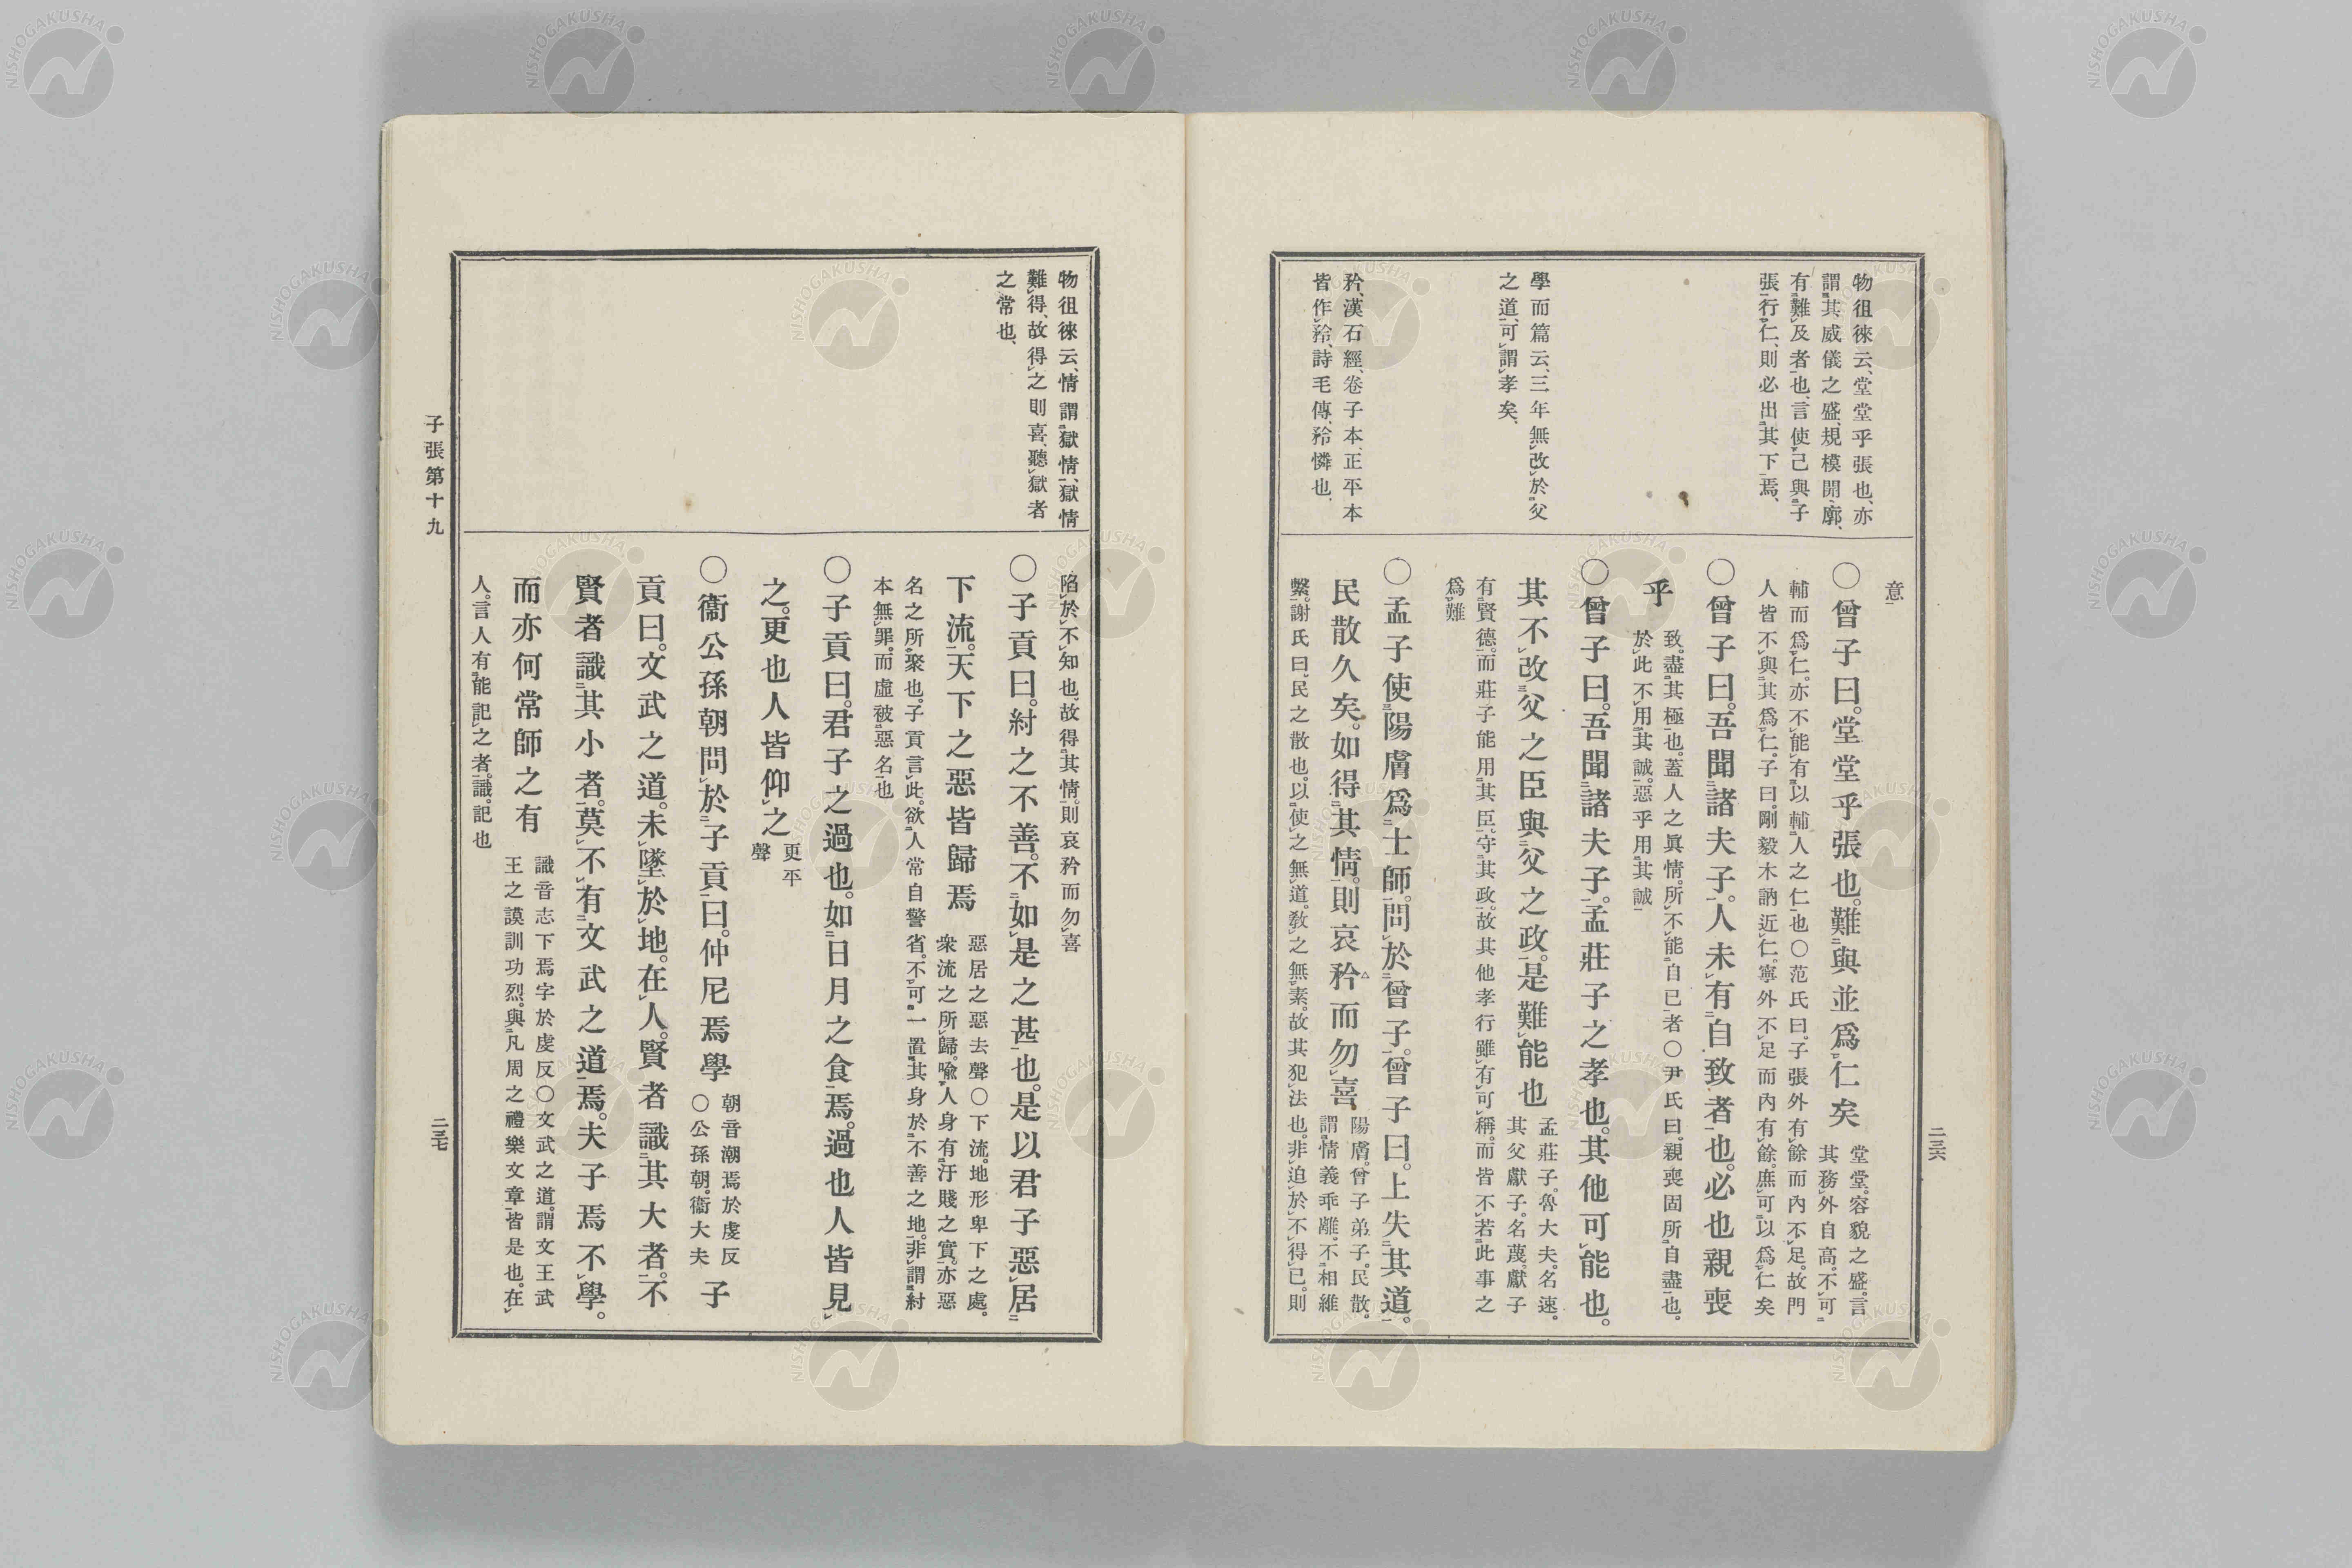 物徂徠云、堂堂乎張也、亦
謂其威儀之盛、規模開廓、
有難及者也、言使己與子
張行仁、則必出其下焉、
學而篇云、三年無改於父
之道、可謂孝矣、
矜、漢石經、卷子本、正平本
皆作矝、詩毛傳、矝憐也、
意
○曾子曰。堂堂乎張也。難與並爲仁矣
堂堂。容貌之盛。言
其務外自高。不可
輔而爲仁。亦不能有以輔人之仁也○范氏曰。子張外有餘而內不足。故門
人皆不與其爲仁。子曰。剛毅木訥近仁。寧外不足而內有餘。庶可以爲仁矣
○曾子曰。吾聞諸夫子。人未有自致者也。必也親喪
乎
致。盡其極也。蓋人之眞情。所不能自已者○尹氏曰。親喪固所自盡也。
於此不用其誠。惡乎用其誠
○曾子曰。吾聞諸夫子。孟莊子之孝也。其他可能也。
其不改父之臣與父之政。是難能也
孟莊子。魯大夫。名速。
其父獻子。名蔑。獻子
有賢德。而莊子能用其臣、守其政。故其他孝行雖有可稱。而皆不若此事之
爲難
○孟子使陽膚爲士師。問於曾子。曾子曰。上失其道。
民散久矣。如得其情。則哀矜而勿喜
陽膚。曾子弟子。民散。
謂情義乖離。不相維
繫。謝氏曰。民之散也。以使之無道。敎之無素。故其犯法也。非迫於不得已。則
二三六
物徂徠云、情謂獄情、獄情
難得、故得之則喜、聽獄者
之常也、
陷於不知也。故得其情。則哀矜而勿喜
○子貢曰。紂之不善。不如是之甚也。是以君子惡居
下流。天下之惡皆歸焉
惡居之惡去聲○下流。地形卑下之處。
衆流之所歸。喩人身有汙賤之實。亦惡
名之所聚也。子貢言此。欲人常自警省。不可一置其身於不善之地。非謂紂
本無罪。而虛被惡名也
○子貢曰。君子之過也。如日月之食焉。過也人皆見
之。更也人皆仰之
更平
聲
○衞公孫朝問於子貢曰。仲尼焉學
朝音潮焉於虔反
○公孫朝。衞大夫
子
貢曰。文武之道。未墜於地。在人。賢者識其大者。不
賢者識其小者。莫不有文武之道焉。夫子焉不學。
而亦何常師之有
識音志下焉字於虔反○文武之道。謂文王武
王之謨訓功烈。與凡周之禮樂文章皆是也。在
人。言人有能記之者。識。記也
子張第十九
二三七